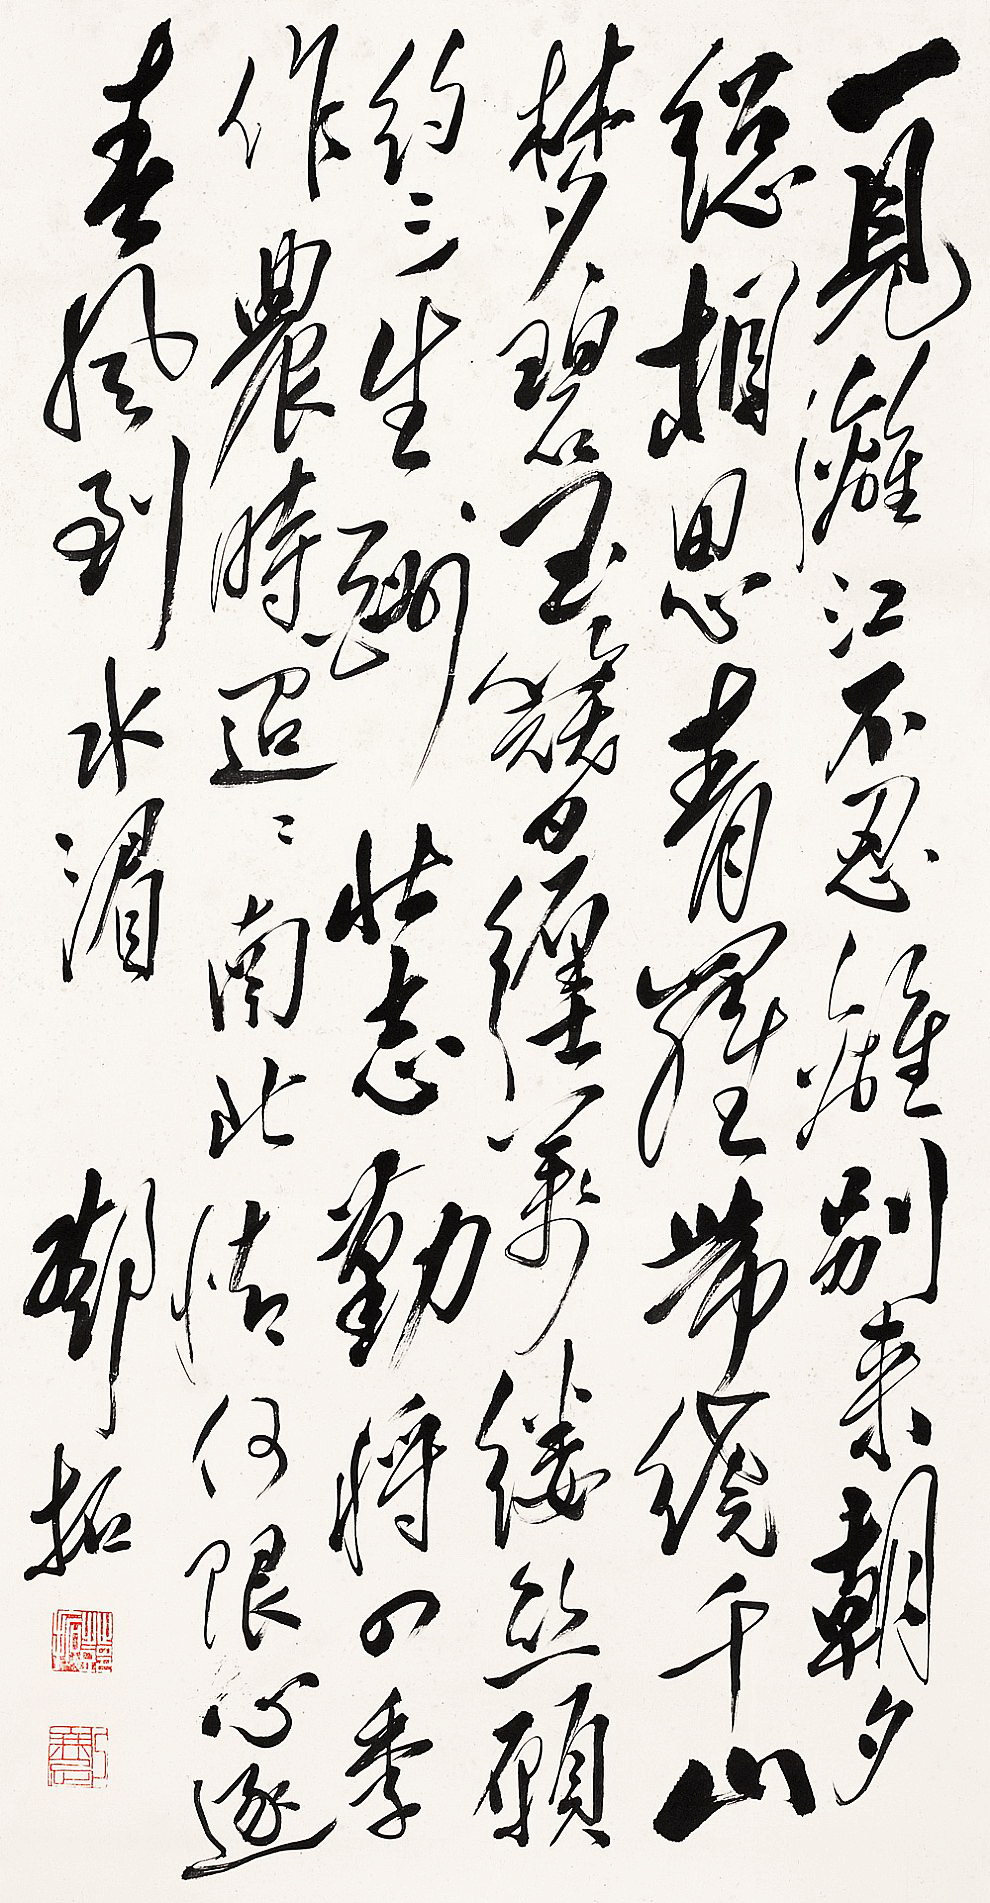 一見灕江不忍離別来朝夕
總相思青羅帶繞千山
梦碧玉簪纏萬縷絲願
約三生酬壯志勤將四季
作農時迢〻南北情何限心逐
春風到水湄
鄧拓